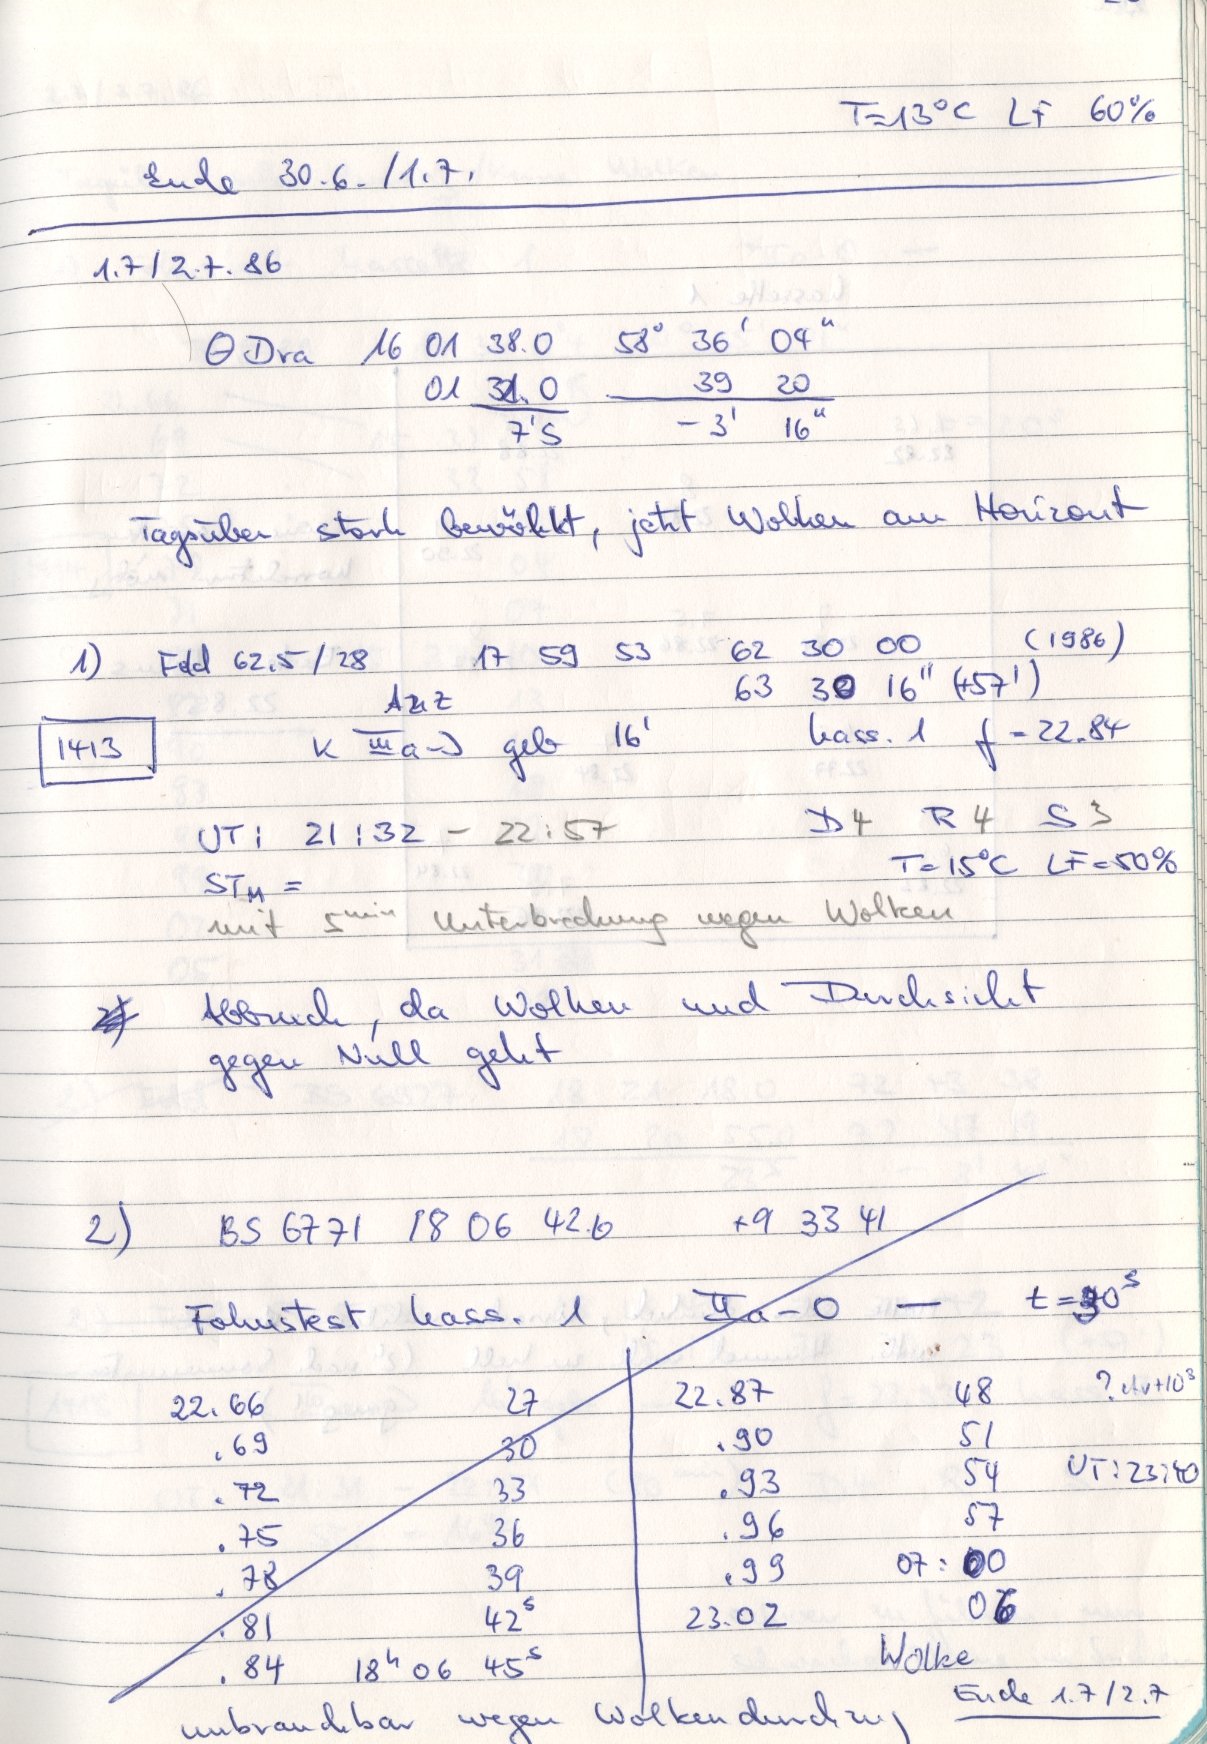 T=13°C LF 60%
Ende 30.6./1.7.
1.7/2.7.86
Θ Dra 16 01 38.0 58° 36' 04"
01 31.0 39 20
7s -3' 16"
Tagsüber stark bewölkt, jetzt Wolken am Horizont
1) Feld 62.5/28 17 59 53 62 30 00 (1986)
63 30 16" (+57')
1413 K IIIa-J geb 16' Kass. 1 f = 22.84
UT: 21:32 - 22:57 D4 R4 S3
T=15°C LF=50%
STM =
mit 5min Unterbrechung wegen Wolken
Abbruch, da Wolken und Durchsicht
gegen Null geht
2) BS 6771 18 06 42.6 +9 33 41
Fokustest Kass. 1 IIa-O — t=30s
22.66 27 22.87 48
.69 30 .90 51
.72 33 .93 54 UT: 23:40
.75 36 .96 57
.78 39 .99 07:00
.81 42s 23.02 06
.84 18h 06 45s Wolke
Ende 1.7/2.7
unbrauchbar wegen Wolkendurchzug